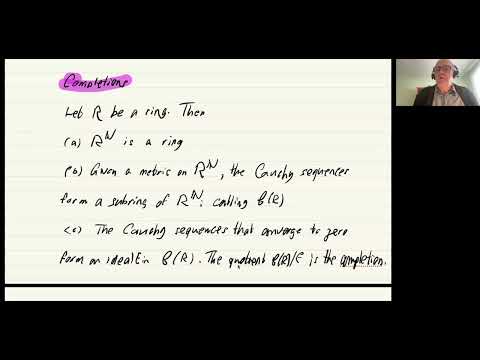 Completions
Let R be a ring. Then
(a) R^ℕ is a ring
(b) Given a metric on R^ℕ, the Cauchy sequences
form a subring of R^ℕ, calling ℓ(R)
(c) The Cauchy sequences that converge to zero
form an ideal in ℓ(R). The quotient ℓ(R)/ is the completion.